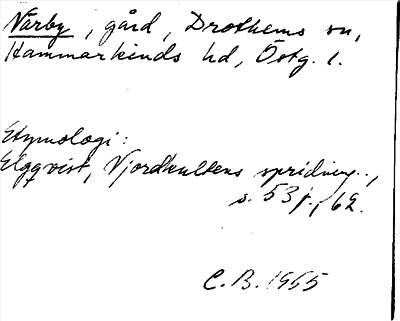 Närby, gård, Drothems sn,
Hammarkinds hd, Östg. l.
Etymologi:
Elgqvist, Njordkultens spridning..,
s. 53 f., 62.
C.B. 1955